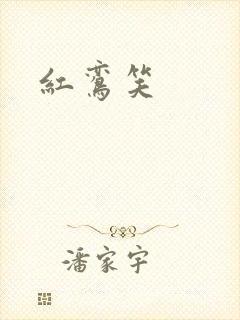 紅鸞笑
潘家宇